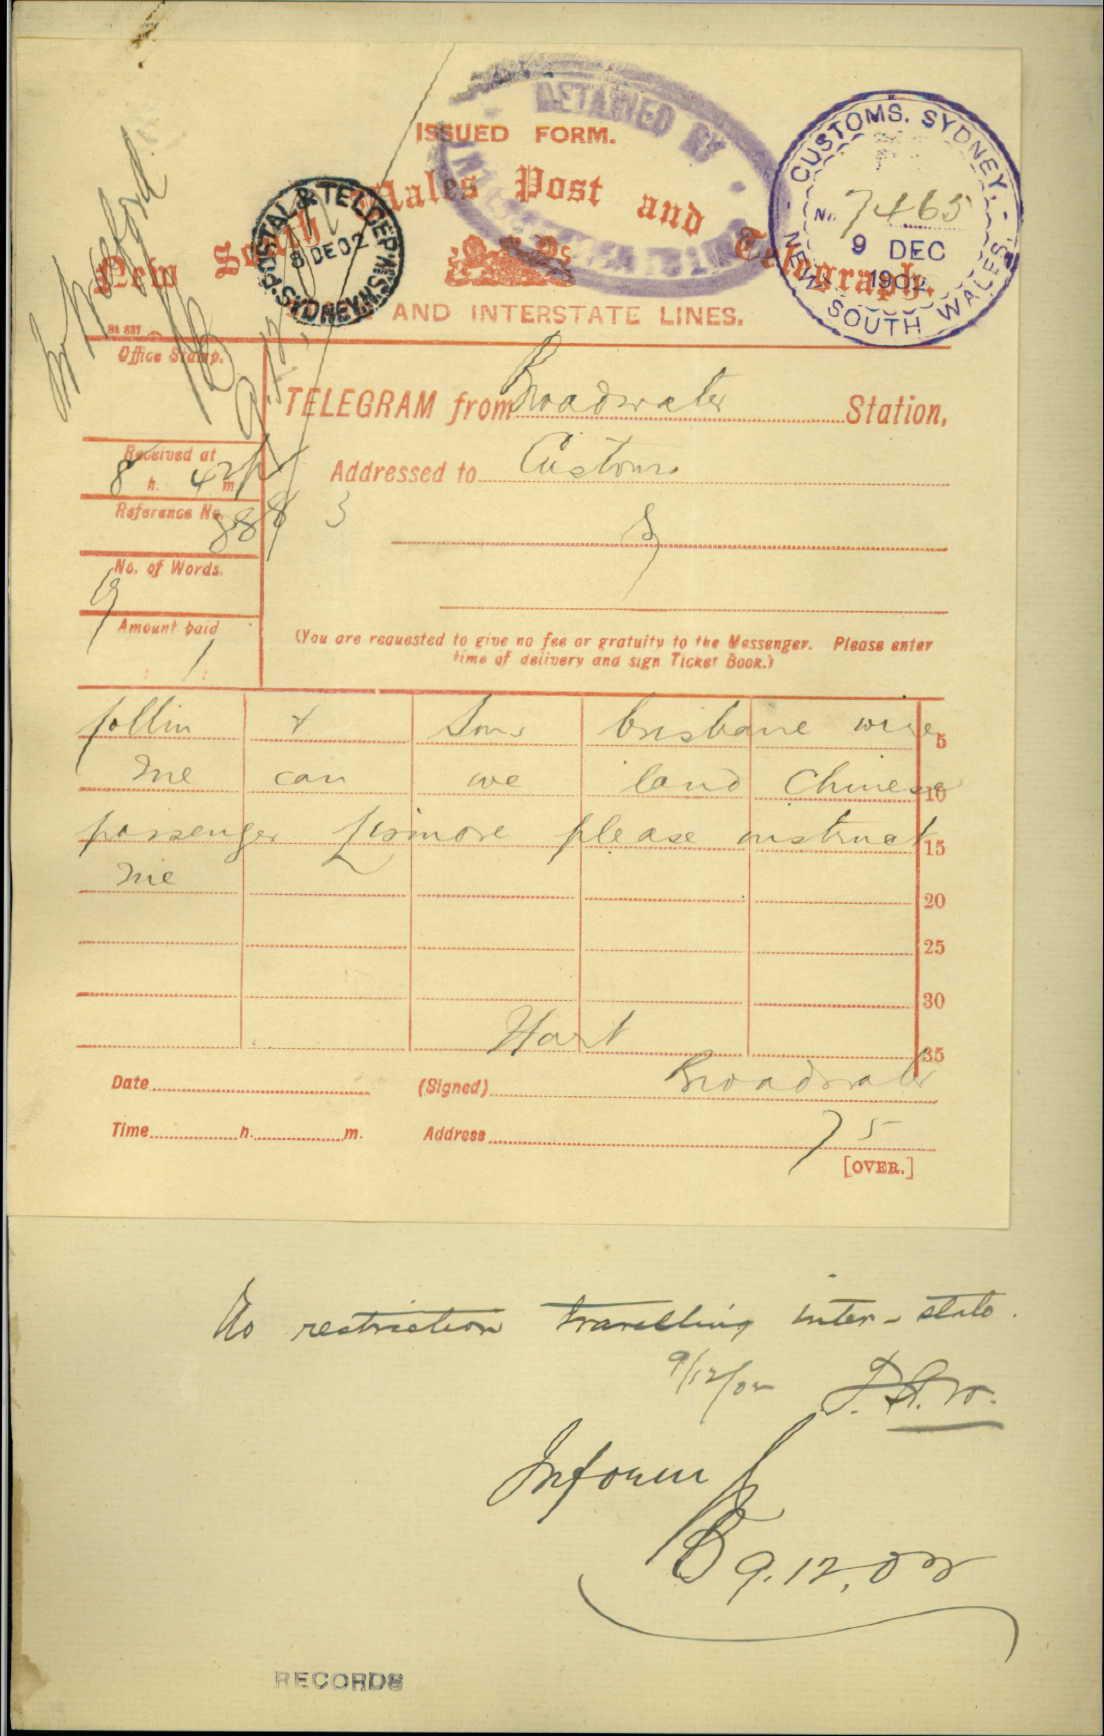 DETAINED BY
ISSUED FORM.
New South Wales Post and Telegraph.
AND INTERSTATE LINES.
POSTAL & TELEGRAPHS
8 DE 02
SYDNEY.
CUSTOMS. SYDNEY.
No. 7465
9 DEC
1902
NEW SOUTH WALES
Office Stamp.
TELEGRAM from Broadwater Station,
Received at
8 h. 42 m p
Addressed to Customs
Reference No.
888
3
S
No. of Words.
19
Amount paid
1
(You are requested to give no fee or gratuity to the Messenger. Please enter
time of delivery and sign Ticket Book.)
Collin & Sons Brisbane wire 5
me can we land Chinese 10
passenger Lismore please instruct 15
me
20
25
30
Hart
35
Date (Signed) Broadwater
Time h. m. Address
75
[OVER.]
No restriction travelling inter-state.
9/12/02
Inform
B 9.12.02
RECORDS